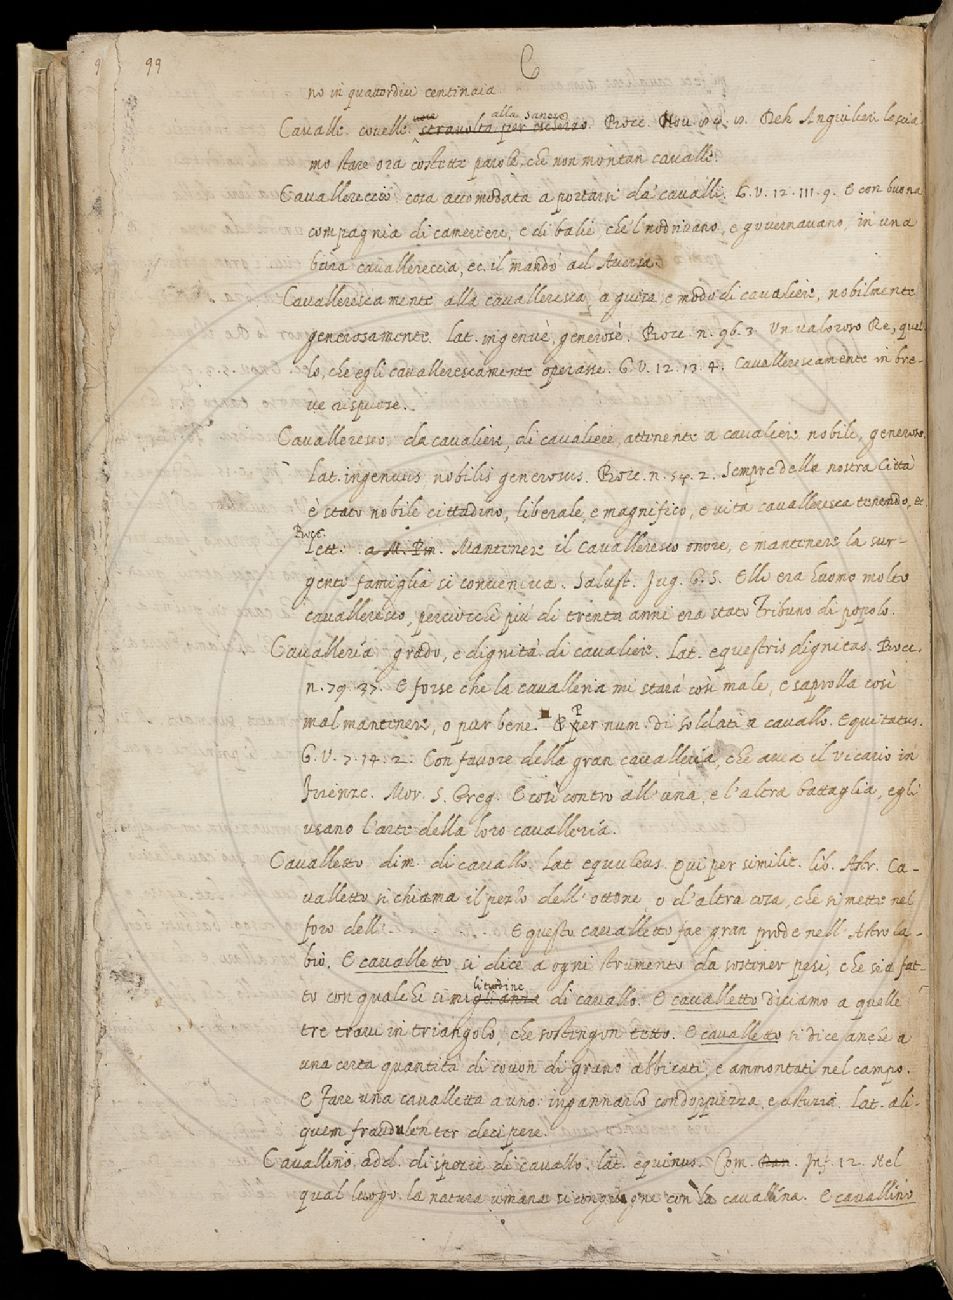 99
C
no in quattordici centinaia
Cavalle. covelle. voce alla Sanese stravolta per ischerzo. Bocc. Nov. Deh Angiulieri lascia
mo stare ora costette parole, che non montan cavalle.
Cavallereccio cosa accomodata a portarsi da cavalli. G.V. 12. 111. 9. E con buona
compagnia di cameriere, e di balie, che'l nodridano, e governavano, in una
bara cavallereccia, ec. il mandò ad Aversa.
Cavallerescamente alla cavalleresca, a guisa, e modo di cavaliere, nobilmente
generosamente. lat. ingenuè, generosè. Bocc. n. 96. 3. Un valoroso Re, quel-
lo, che egli cavallerescamente operasse. G.V. 12. 13. 4. Cavallerescamente in bre-
ve rispuose.
Cavalleresco. da cavaliere, di cavaliere, attenente a cavaliere nobile, generoso.
Lat. ingenuus nobilis generosus. Bocc. n. 54. 2. Sempre della nostra Città
è stato nobile cittadino, liberale, e magnifico, e vita cavalleresca tenendo, ec
Bocc.
lett. a M. Pin. Mantenere il cavalleresco onore, e mantenere la sur-
gente famiglia si conveniva. Salust. Jug. G. S. Elli era huomo molto
cavalleresco, perciocchè più di trenta anni era stato Tribuno di popolo.
Cavalleria grado, e dignità di cavaliere. Lat. equestris dignitas. Bocc.
n. 79. 37. E forse che la cavalleria mi starà così male, e saprolla così
mal mantenere, o pur bene. & Per num. di soldati a cavallo. Equitatus.
G.V. 7. 14. 2. Con favore della gran cavalleria, che avea il vicario in
Firenze. Mor. S. Greg. E così contro all'una, e l'altra battaglia, egli
usano l'arte della loro cavalleria.
Cavalletto dim. di cavallo. Lat equuleus. Qui per similit. lib. Astr. Ca-
valletto si chiama il perlo dell'ottone, o d'altra cosa, che si mette nel
foro dell'. . . . . . E questo cavalletto fae gran prode nell'Astrola-
bio. E cavalletto si dice a ogni strumento da sostener pesi, che sia fat-
to con qualche similitudine glianza di cavallo. E cavalletto diciamo a quelle
tre travi in triangolo, che sostengon tetto. E cavalletto si dice anche a
una certa quantità di covon di grano abbicati, e ammontati nel campo.
E Fare una cavalletta a uno: ingannarlo con doppiezza, e astuzia. Lat. ali-
quem fraudulenter decipere.
Cavallino add. di spezie di cavallo. lat. equinus. Com. Dan. Inf. 12. Nel
qual luogo la natura umana si congiugne con la cavallina. E cavallino